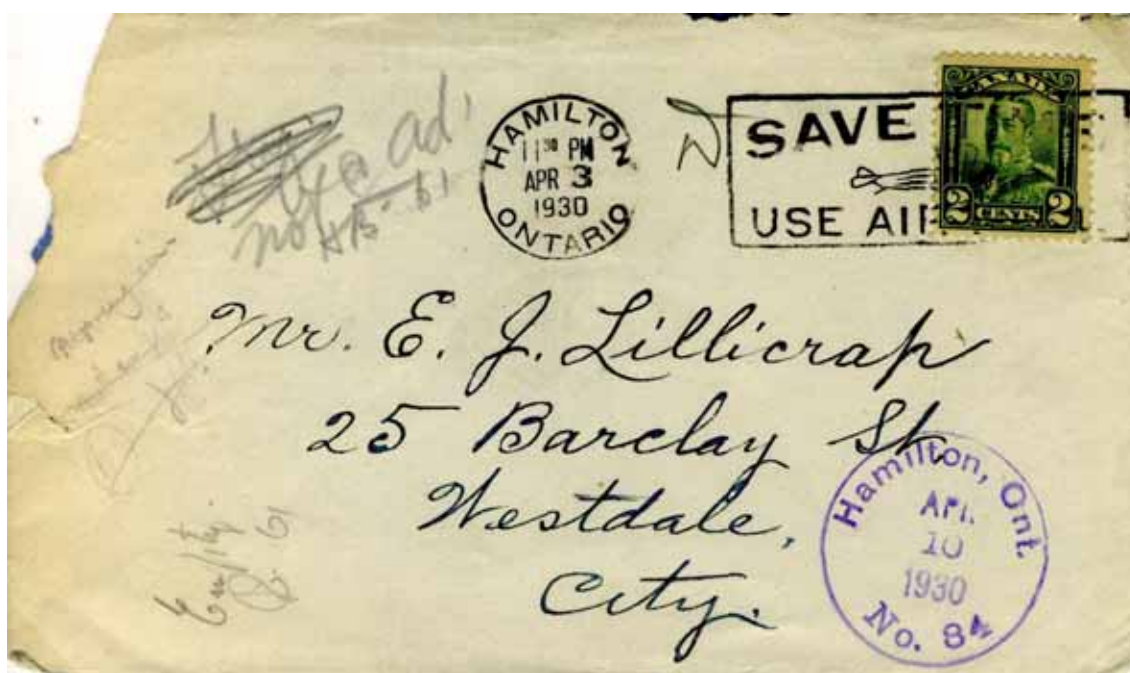 HAMILTON
11 30 PM
APR 3
1930
ONTARIO
SAVE
USE AIR
CANADA
2 CENTS 2
ad.
not @
Mr. E. J. Lillicrap
25 Barclay St.
Westdale,
City.
Empty.
Hamilton, Ont.
APR.
10
1930
No. 84